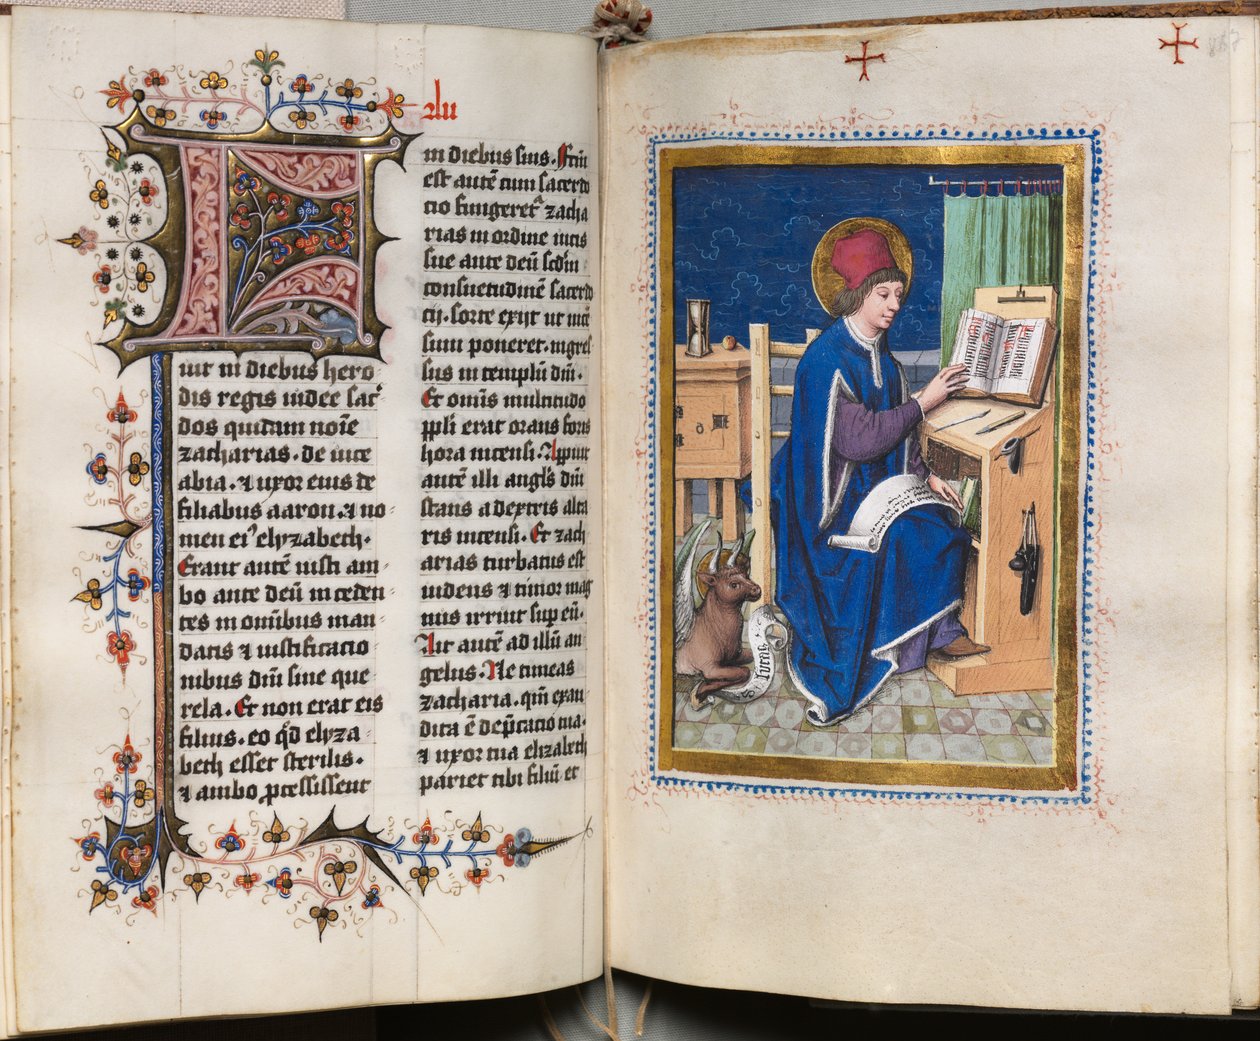 xlu
Fuit in diebus hero-
dis regis iudee sac̉
dos quidam noīe
zacharias. de uice
abia. ⁊ uxor eius de
filiabus aaron. ⁊ no-
men ei⁹ elyzabeth.
Erant autē iusti am-
bo ante deū inceden-
tes in omībus man-
datis ⁊ iustificatio
nibus dn̄i sine que
rela. Et non erat eis
filius. eo qd̓ elyza-
beth esset sterilis.
⁊ ambo ꝓcessissent
in diebus suis. Fc̄m
est autē cum sacerdo
tio fungeretᷣ zacha
rias in ordine uicis
sue ante deū scd̓m
consuetudinē sacerdo
tij. sorte exijt ut incē
sum poneret. ingres
sus in templū dn̄i.
Et omīs multitudo
ppl̓i erat orans foris
hora incensi. Appuit
autē illi angl̓s dn̄i
stans a dextris alta
ris incensi. Et zach
arias turbatus est
uidens ⁊ timor mag
nus irruit sup eū.
Ait autē ad illū an
gelus. Ne timeas
zacharia. qm̄ exau-
dita ē dep̄catio tua.
⁊ uxor tua elizabeth
pariet tibi filiū et
S lucas